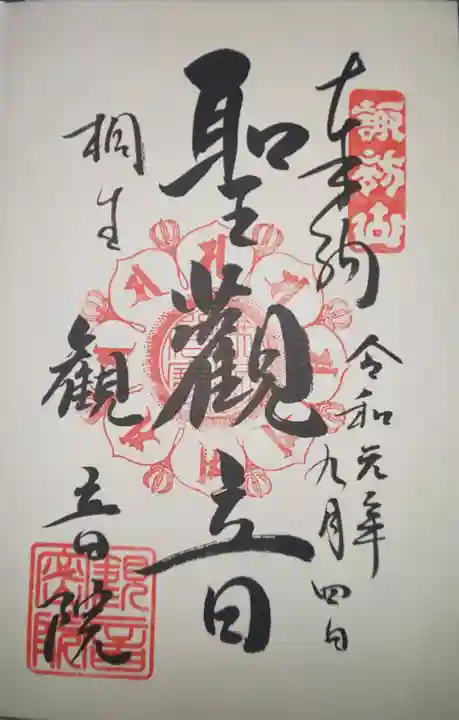 諏訪山
奉納
令和元年九月四日
聖觀音
桐生
観音院
観音院